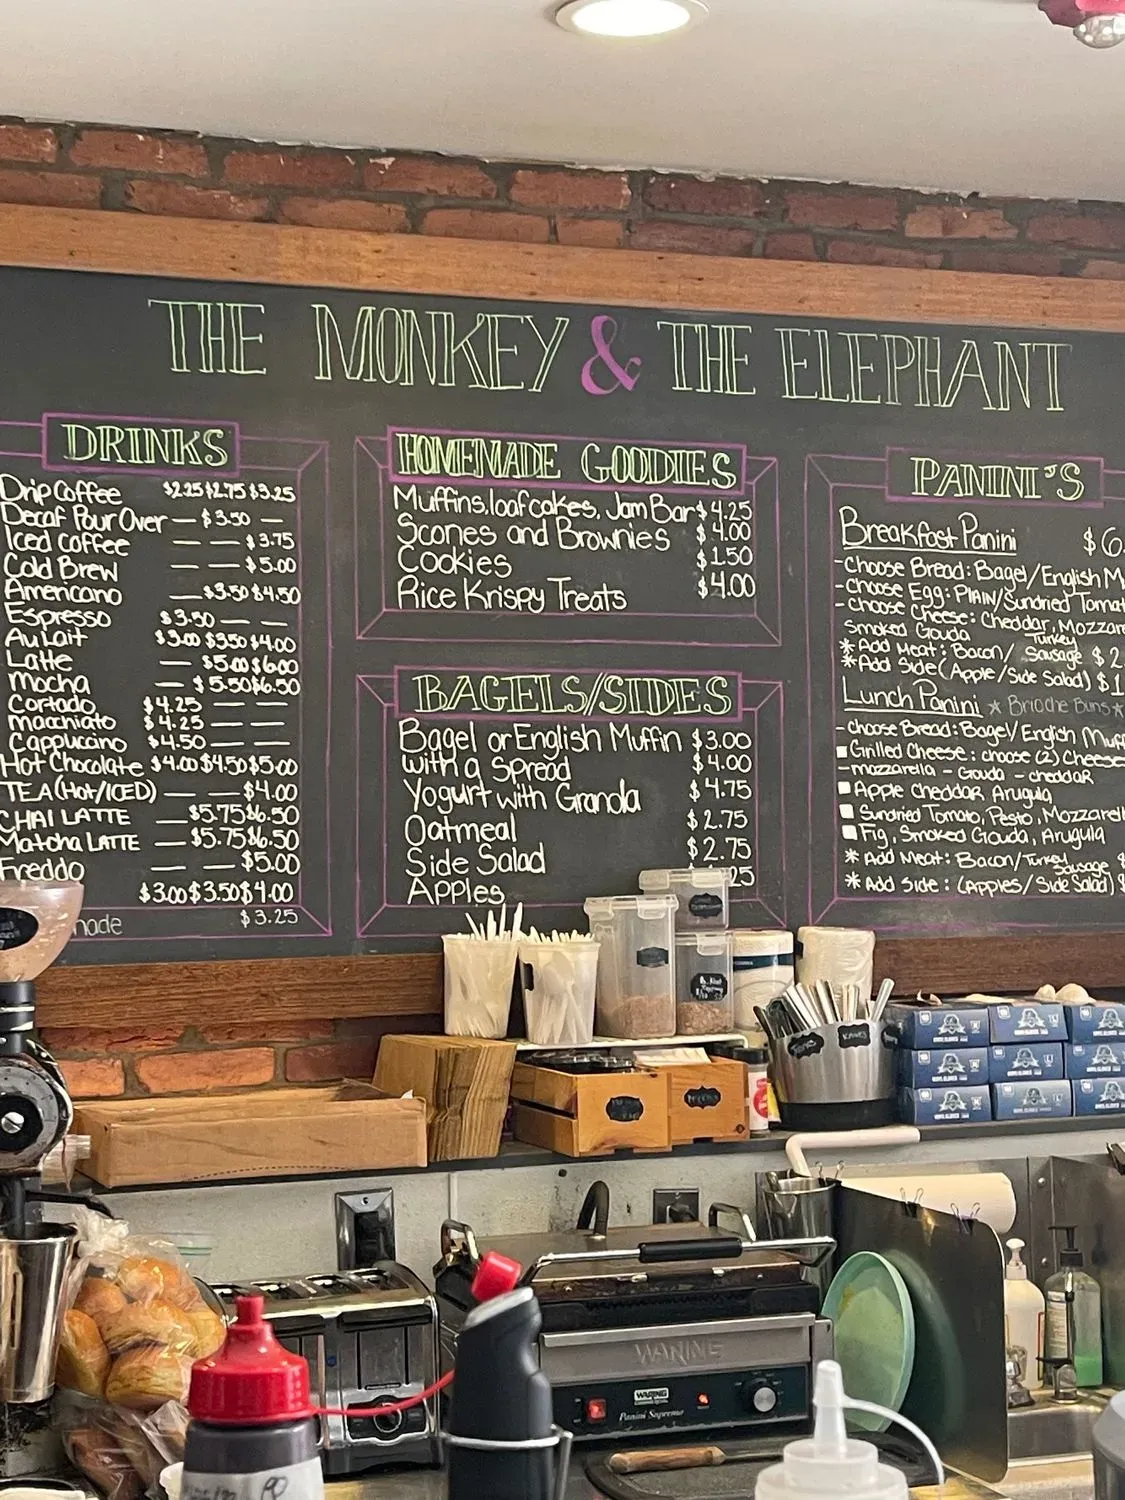 THE MONKEY & THE ELEPHANT
DRINKS
Drip Coffee $2.25 $2.75 $3.25
Decaf Pour Over — $3.50 —
Iced coffee — — $3.75
Cold Brew — — $5.00
Americano — $3.50 $4.50
Espresso $3.50 — —
Au Lait $3.00 $3.50 $4.00
Latte — $5.00 $6.00
Mocha — $5.50 $6.50
Cortado $4.25 — —
Macchiato $4.25 — —
Cappuccino $4.50 — —
Hot Chocolate $4.00 $4.50 $5.00
TEA (Hot/ICED) — — $4.00
CHAI LATTE — $5.75 $6.50
Matcha LATTE — $5.75 $6.50
Freddo — $5.00
$3.00 $3.50 $4.00
$3.25
HOMEMADE GOODIES
Muffins, loafcakes, Jam Bar $4.25
Scones and Brownies $4.00
Cookies $1.50
Rice Krispy Treats $4.00
BAGELS/SIDES
Bagel or English Muffin $3.00
with a Spread $4.00
Yogurt with Granola $4.75
Oatmeal $2.75
Side Salad $2.75
Apples 25
PANINI'S
Breakfast Panini $6.
-Choose Bread: Bagel/English M
-Choose Egg: PLAIN/Sundried Tomat
-Choose Cheese: Cheddar, Mozzare
Smoked Gouda
*Add Meat: Bacon/ Turkey Sausage $2.
*Add Side (Apple/Side Salad) $1
Lunch Panini ★ Brioche Buns ★
-Choose Bread: Bagel/English Muff
Grilled Cheese: choose (2) Cheese
-mozzarella - Gouda - cheddar
Apple cheddar, Arugula
Sundried Tomato, Pesto, Mozzarell
Fig, Smoked Gouda, Arugula
* Add Meat: Bacon/Turkey Sausage $
* Add Side: (Apples/Side Salad) $
WARING
WARING
Panini Supremo